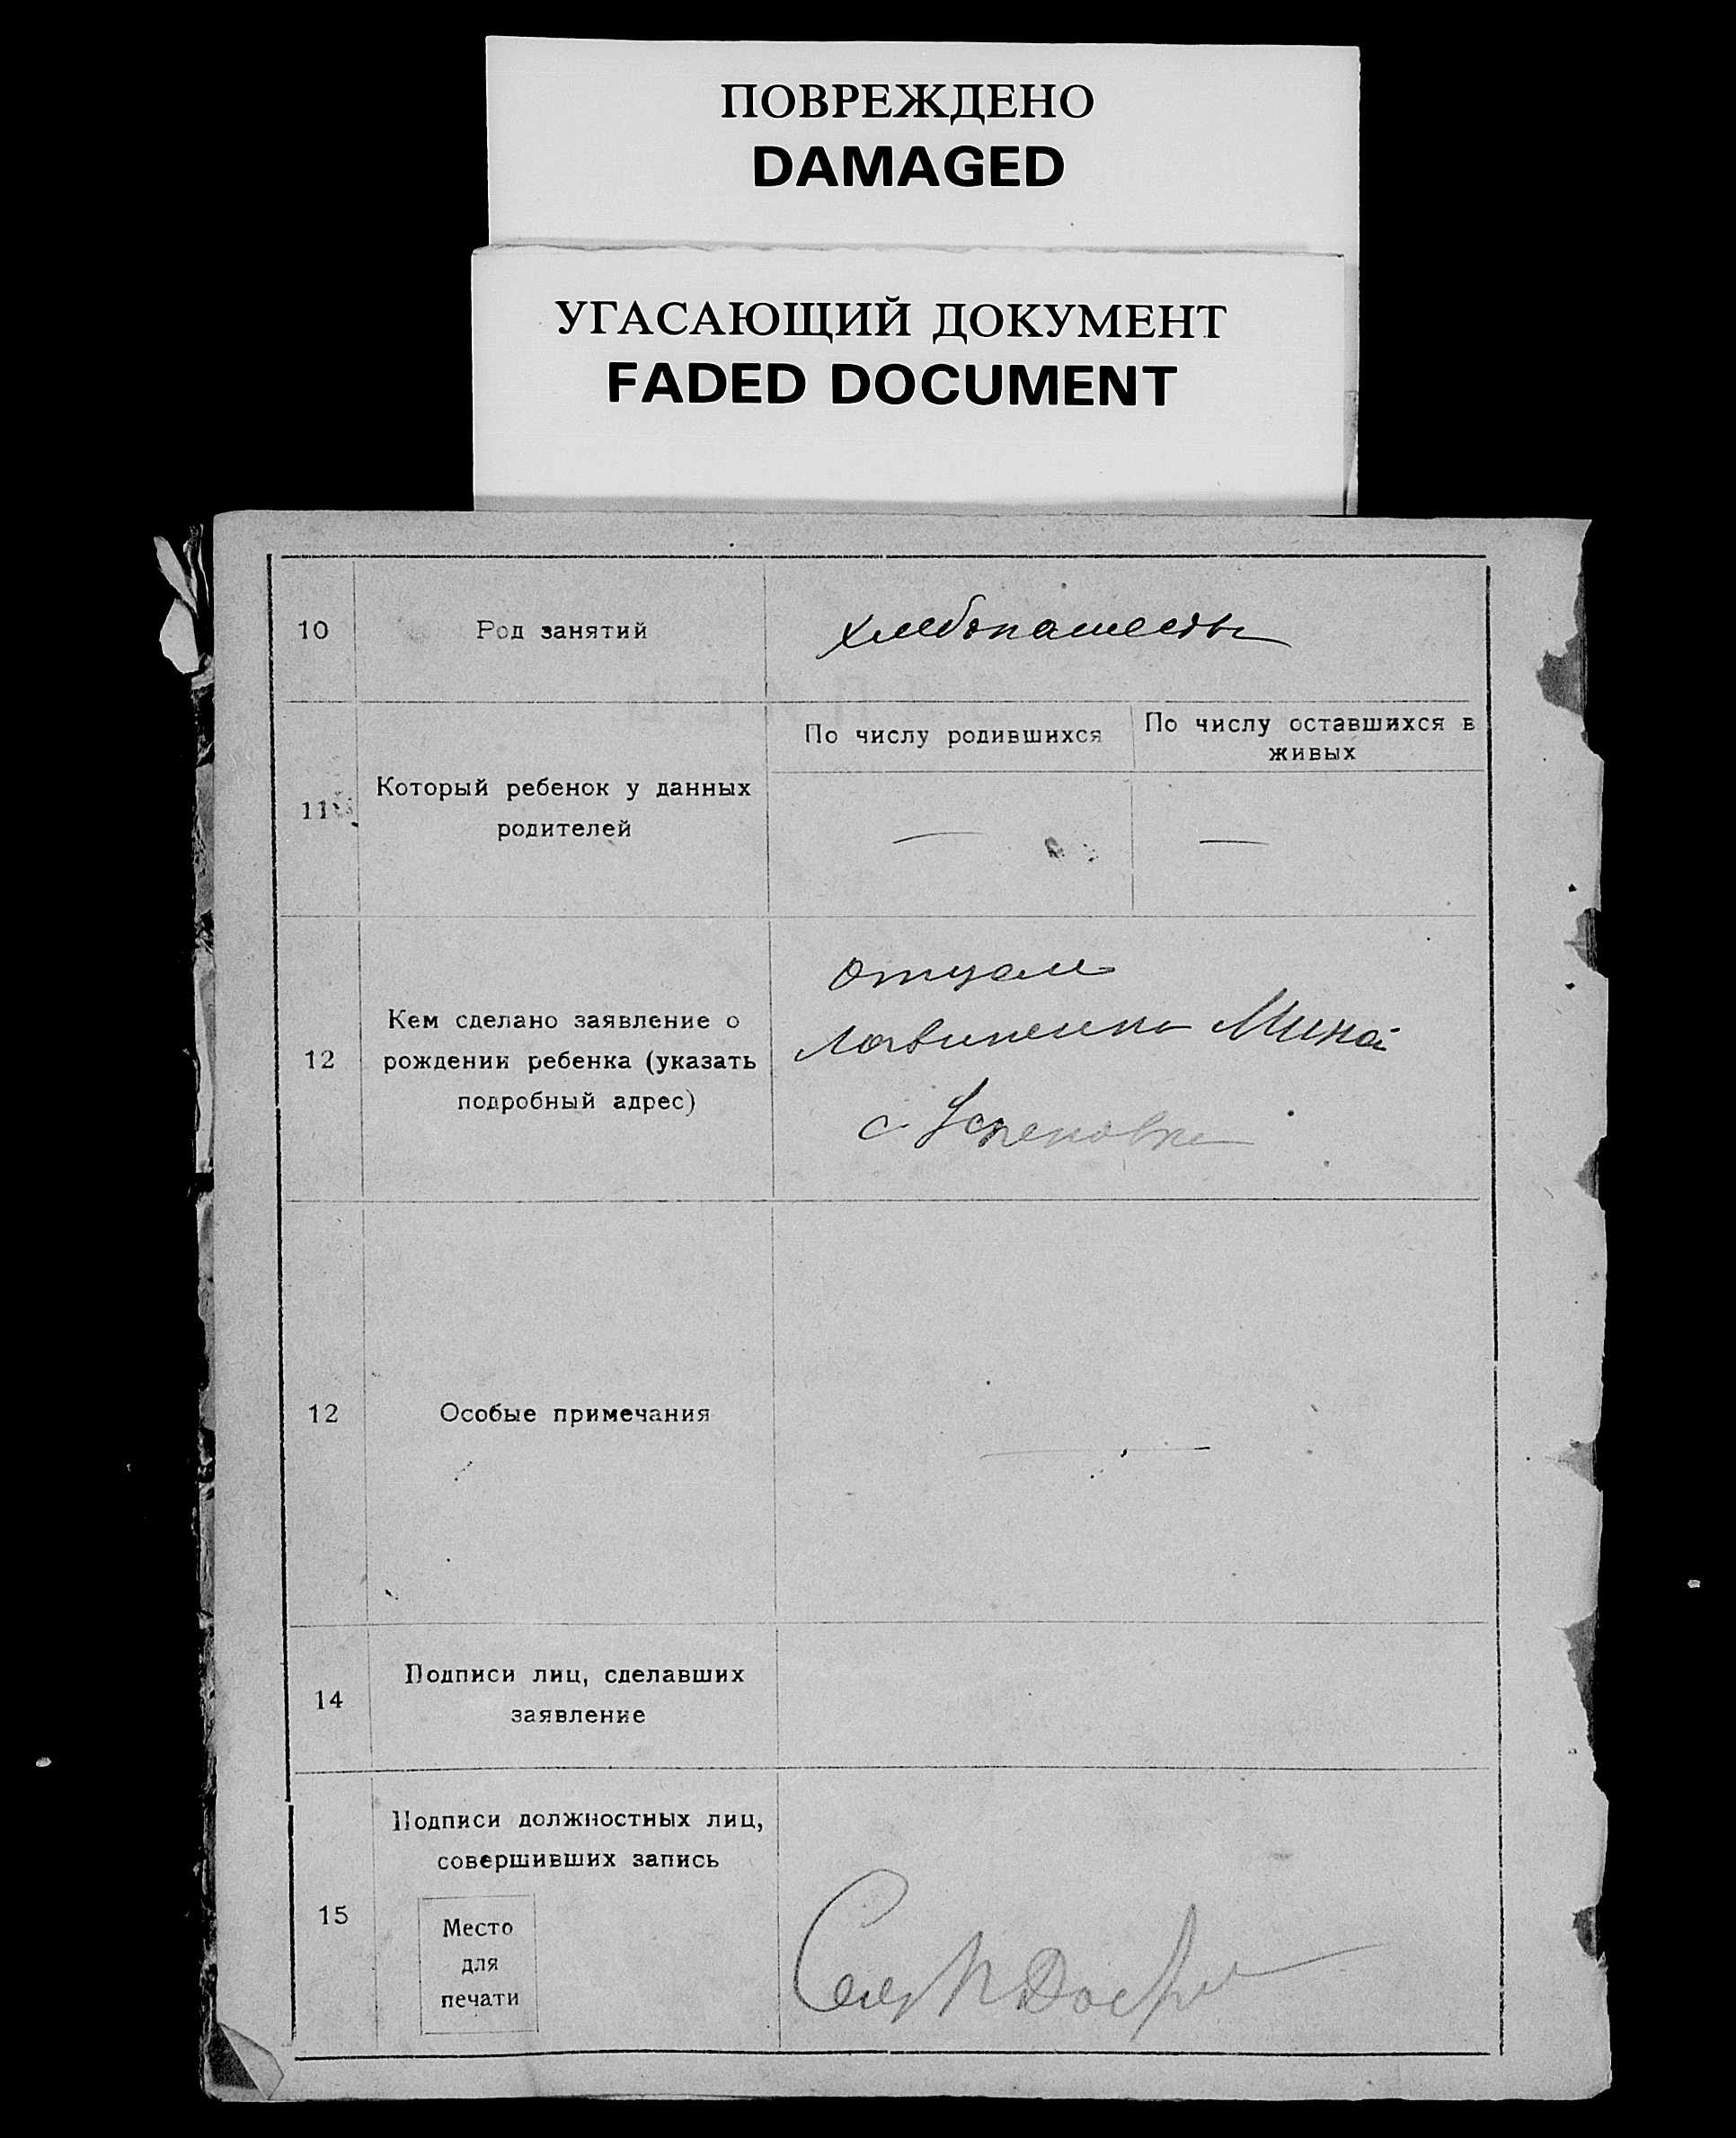 ПОВРЕЖДЕНО
DAMAGED
УГАСАЮЩИЙ ДОКУМЕНТ
FADED DOCUMENT
10
Род занятий
11
Который ребенок у данных
родителей
По числу родившихся
По числу оставшихся в
живых
—
—
12
Кем сделано заявление о
рождении ребенка (указать
подробный адрес)
отцам
Мина
с Успеновка
12
Особые примечания
—
14
Подписи лиц, сделавших
заявление
15
Подписи должностных лиц,
совершивших запись
Место
для
печати